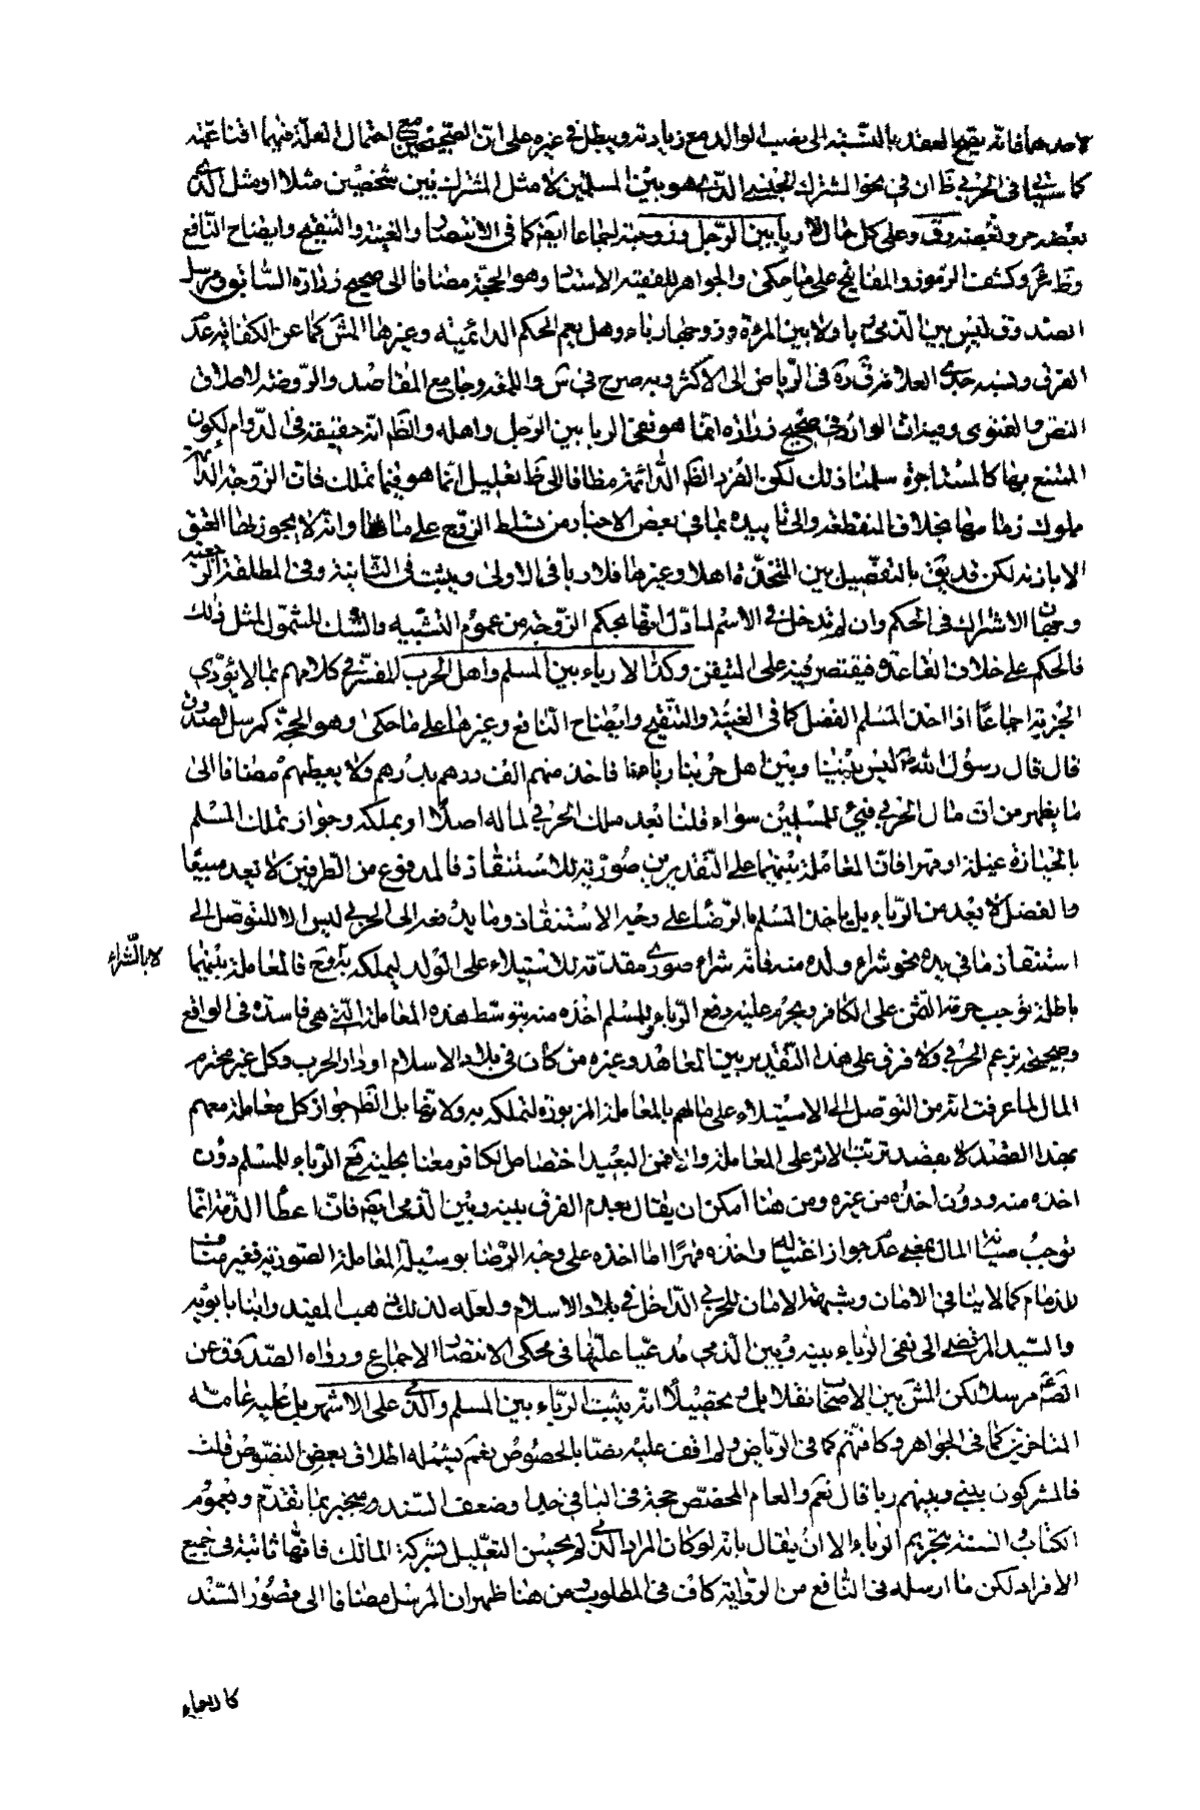 لاحدهما فانه يصح العقد بالنسبة الى نصيب الوالد مع زيادته ويبطل في غيره على ان الصحيحين مع احتمال العلة فيهما
كما سيأتي في الحربي ظ ان في نحو المشترك الجنسي الذي هو بين المسلمين لا مثل المشترك بين شخصين مثلا او مثل الذي
بعضه حر وبعضه رق وعلى كل حال لا ربا بين الرجل وزوجته اجماعا ايضا كما في الانتصار والغنية والتنقيح وايضاح النافع
وظ ئر وكشف الرموز والمفاتيح على ما حكى والجواهر للفقيه الاستاد وهو الحجة مضافا الى صحيح زرارة السابق ومرسل
الصدوق ليس بين الذمي با ولا بين المرءة وزوجها رباء وهل يعم الحكم الدائمية وغيرها المش كما عن الكفاية عد
الفرق ونسبه جدي العلامة قده في الرياض الى الاكثر وبه صرح في س واللمعة وجامع المقاصد والروضة لاطلاق
النص والفتوى وميزان الوارد في صحيح زرارة انما هو نفى الربا بين الرجل واهله والظ انه حقيقة في الدوام لكون
المتمتع بها كالمستاجرة سلمنا ذلك لكن الفرد الظ الدائمة مضافا الى ظ تعليل انما هو فيما تملك فان الزوجة الدائمة
ملوك زمامها بخلاف المنقطعة والى تاييده بما في بعض الاخبار من تسلط الزوج على مالها وانه لا يجوز لها العتق
الا باذنه لكن قد يق بالتفصيل بين المتخذة اهلا وغيرها فلا ربا في الاولى ويثبت في الثانية وفي المطلقة الرجعية
وجهان الاشتراك في الحكم وان لم تدخل في الاسم لما دل انها بحكم الزوجة من عموم التشبيه والشك للشمول لمثل ذلك
فالحكم على خلاف القاعدة فيقتصر فيه على المتيقن وكذا لا رباء بين المسلم واهل الحرب المفسر في كلامهم بما لا يؤدي
الجزية اجماعا اذا اخذ المسلم الفضل كما في الغنية والتنقيح وايضاح النافع وغيرها على ما حكى وهو الحجة كمرسل الصدوق
قال قال رسول الله ص ليس بيننا وبين اهل حربنا ربا فاخذ منهم الف درهم بدرهم ولا نعطيهم مضافا الى
ما يظهر من ان مال الحربي فيئ للمسلمين سواء قلنا بعدم ملك الحربي لماله اصلا او بملكه وجواز تملك المسلم
بالحيازة غيلة او قهرا فان المعاملة بينهما على التقديرين صورية للاستنقاذ فالمدفوع من الطرفين لا يعد مبيعا
والفضل لا يعد من الرباء بل ياخذ المسلم بالرضا على وجه الاستنقاذ وما يدفعه الى الحربي ليس الا للتوصل الى
استنقاذ ما في يده نحو شراء ولده منه فانه شراء صوري مقدمة للاستيلاء على الولد ليملكه به وح فالمعاملة بينهما
لا بالشراء
باطلة توجب حرمة الثمن على الكافر ويحرم عليه دفع الرباء وللمسلم اخذه منه بتوسط هذه المعاملة التي هي فاسدة في الواقع
وصحيحة بزعم الحربي ولا فرق على هذا التقدير بين المعاهد وغيره من كان في بلاد الاسلام او دار الحرب وكل غير محترم
المال لما عرفت انه من التوصل الى الاستيلاء على مالهم بالمعاملة المزبورة لتملكه به ولا بها بل الظ جواز كل معاملة معهم
بهذا القصد لا بقصد ترتب الاثر على المعاملة والا فمن البعيد اختصاص الكافر معنا بحلية دفع الرباء للمسلم دون
اخذه منه ودون اخذه من غيره ومن هنا امكن ان يقال بعدم الفرق بينه وبين الذمي ايضا فان اعطاء الذمة انما
توجب صيانة المال بمعنى عد جواز اغتياله واخذه قهرا اما اخذه على وجه الرضا بوسيلة المعاملة الصورية فغير مناف
للذمام كما لا ينافي الامان وشبهة الامان للحربي الداخل في بلاد الاسلام ولعله لذلك ذهب المفيد وابنا بابويه
والسيد المرتضى الى نفى الرباء بينه وبين الذمي مدعيا عليها في محكى الانتصار الاجماع ورواه الصدوق عن
الصم مرسلا لكن المش بين الاصحاب نقلا بل وتحصيلا انه يثبت الرباء بين المسلم والذمي على الاشهر بل عليه عامة
المتاخرين كما في الجواهر وكافتهم كما في الرياض ولم اقف عليه نصا بالخصوص نعم يشمله اطلاق بعض النصوص قلت
فالمشركون بيني وبينهم ربا قال نعم والعام المخصص حجة في الباقي جدا وضعف السند منجبر بما تقدم وبعموم
الكتاب السنة بتحريم الرباء الا ان يقال بانه لو كان المراد الذمي لم يحسن التعليل بشركة المالك فانها ثانية في جميع
الافراد لكن ما ارسله في النافع من الرواية كاف في المطلوب ومن هنا ظهر ان المرسل مضافا الى قصور السند
كا